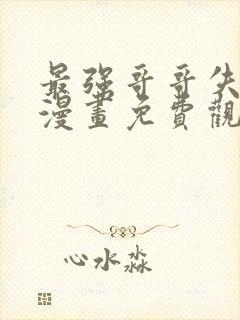 最强哥哥失
漫畫免費觀
心水淼